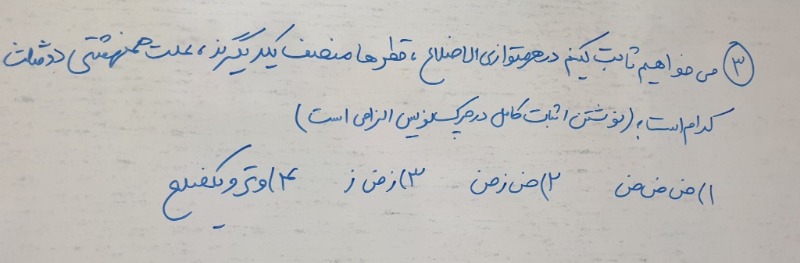 ۳) می خواهیم ثابت کنیم در هر متوازی الاضلاع، قطرها منصف یکدیگرند، علت همنهشتی دو مثلث
کدام است؟ (نوشتن اثبات کامل در چرک نویس الزامی است)
۱) ض ض ض ۲) ض ز ض ۳) ز ض ز ۴) وتر و یک ضلع